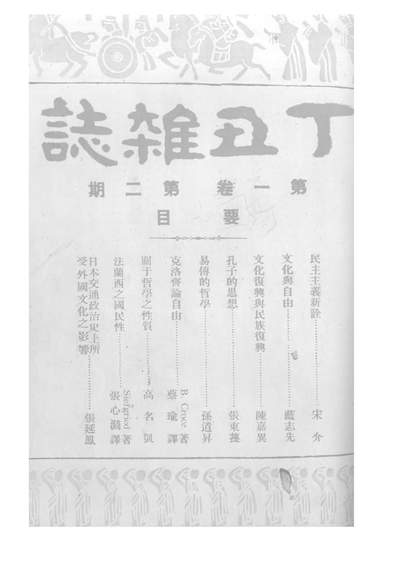 丁丑雜誌
第一卷 第二期
要目
民主主義新詮…………宋介
文化與自由…………藍志先
文化復興與民族復興…………陳嘉異
孔子的思想…………張東蓀
易傳的哲學…………孫道昇
克洛齊論自由…………B. Croce 著 蔡瓏 譯
關于哲學之性質…………高名凱
法蘭西之國民性…………Siegfried 著 張心漪 譯
日本交通政治史上所受外國文化之影響…………張延鳳